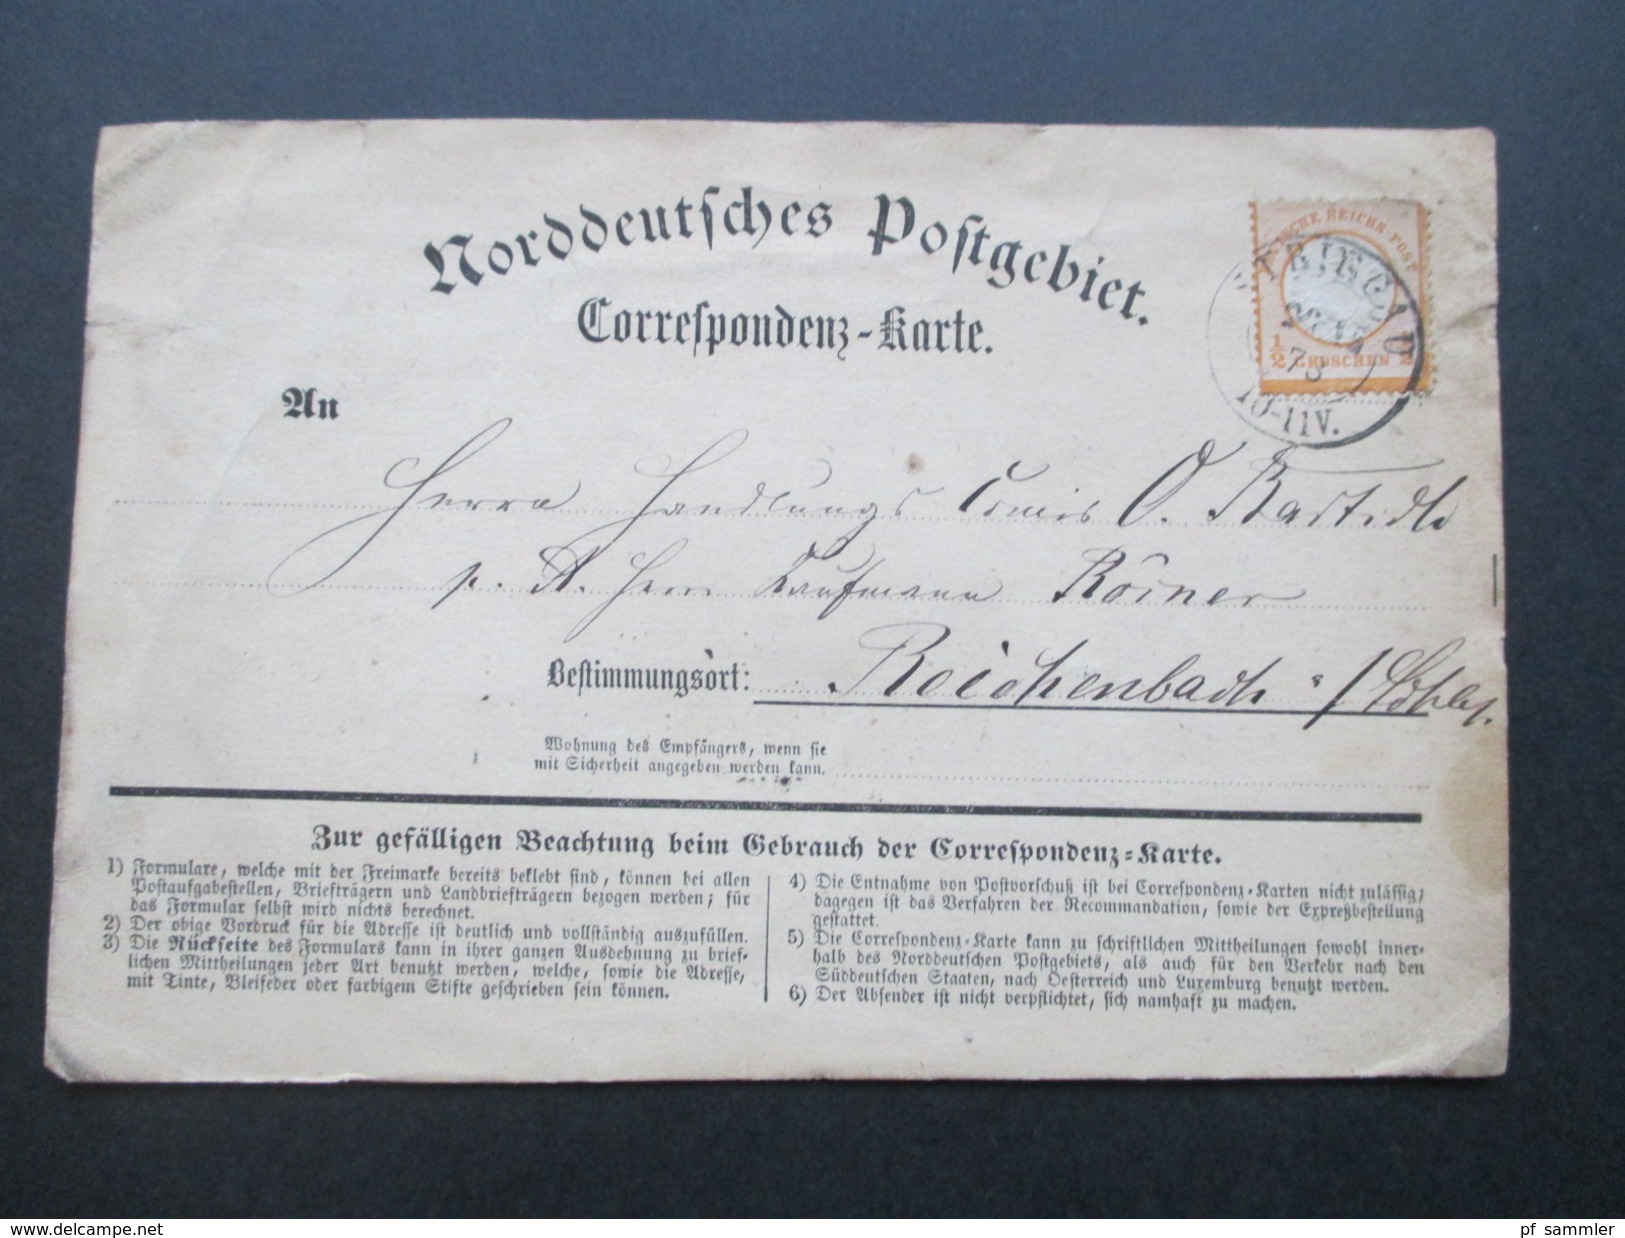 Norddeutsches Postgebiet.
Correspondenz-Karte.
DEUTSCHE REICHS-POST
1/2 GROSCHEN 1/2
STRIEGAU
7 8
10-11V.
An
Herrn Handlungs Comis O.
p. A. Herrn Kaufmann Römer
Bestimmungsort: Reichenbach i/Schles.
Wohnung des Empfängers, wenn sie
mit Sicherheit angegeben werden kann.
Zur gefälligen Beachtung beim Gebrauch der Correspondenz-Karte.
1) Formulare, welche mit der Freimarke bereits beklebt sind, können bei allen
Postaufgabestellen, Briefträgern und Landbriefträgern bezogen werden; für
das Formular selbst wird nichts berechnet.
2) Der obige Vordruck für die Adresse ist deutlich und vollständig auszufüllen.
3) Die Rückseite des Formulars kann in ihrer ganzen Ausdehnung zu brief-
lichen Mittheilungen jeder Art benutzt werden, welche, sowie die Adresse,
mit Tinte, Bleifeder oder farbigem Stifte geschrieben sein können.
4) Die Entnahme von Postvorschuß ist bei Correspondenz-Karten nicht zulässig;
dagegen ist das Verfahren der Recommandation, sowie der Expreßbestellung
gestattet.
5) Die Correspondenz-Karte kann zu schriftlichen Mittheilungen sowohl inner-
halb des Norddeutschen Postgebiets, als auch für den Verkehr nach den
Süddeutschen Staaten, nach Oesterreich und Luxemburg benutzt werden.
6) Der Absender ist nicht verpflichtet, sich namhaft zu machen.
www.delcampe.net
pf_sammler